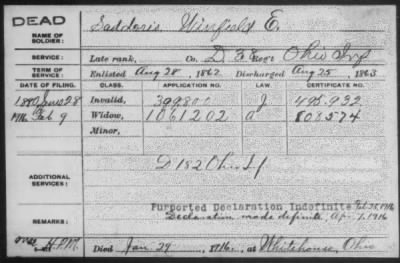 DEAD
NAME OF SOLDIER: Saddoris, Winfield E.
SERVICE: Late rank, Co. D 38 Reg't Ohio Inf
TERM OF SERVICE: Enlisted Aug 28, 1862 Discharged Aug 25, 1863
DATE OF FILING. CLASS. APPLICATION NO. LAW. CERTIFICATE NO.
1880 June 28 Invalid, 399800 J 495.932
1916 Feb 9 Widow, 1061202 a 808574
Minor,
ADDITIONAL SERVICES: D 182 Ohio Inf
Purported Declaration Indefinite, Feb 25, 1916
REMARKS: Declaration made definite, Apr. 7, 1916
Died Jan 29, 1916, at Whitehouse, Ohio